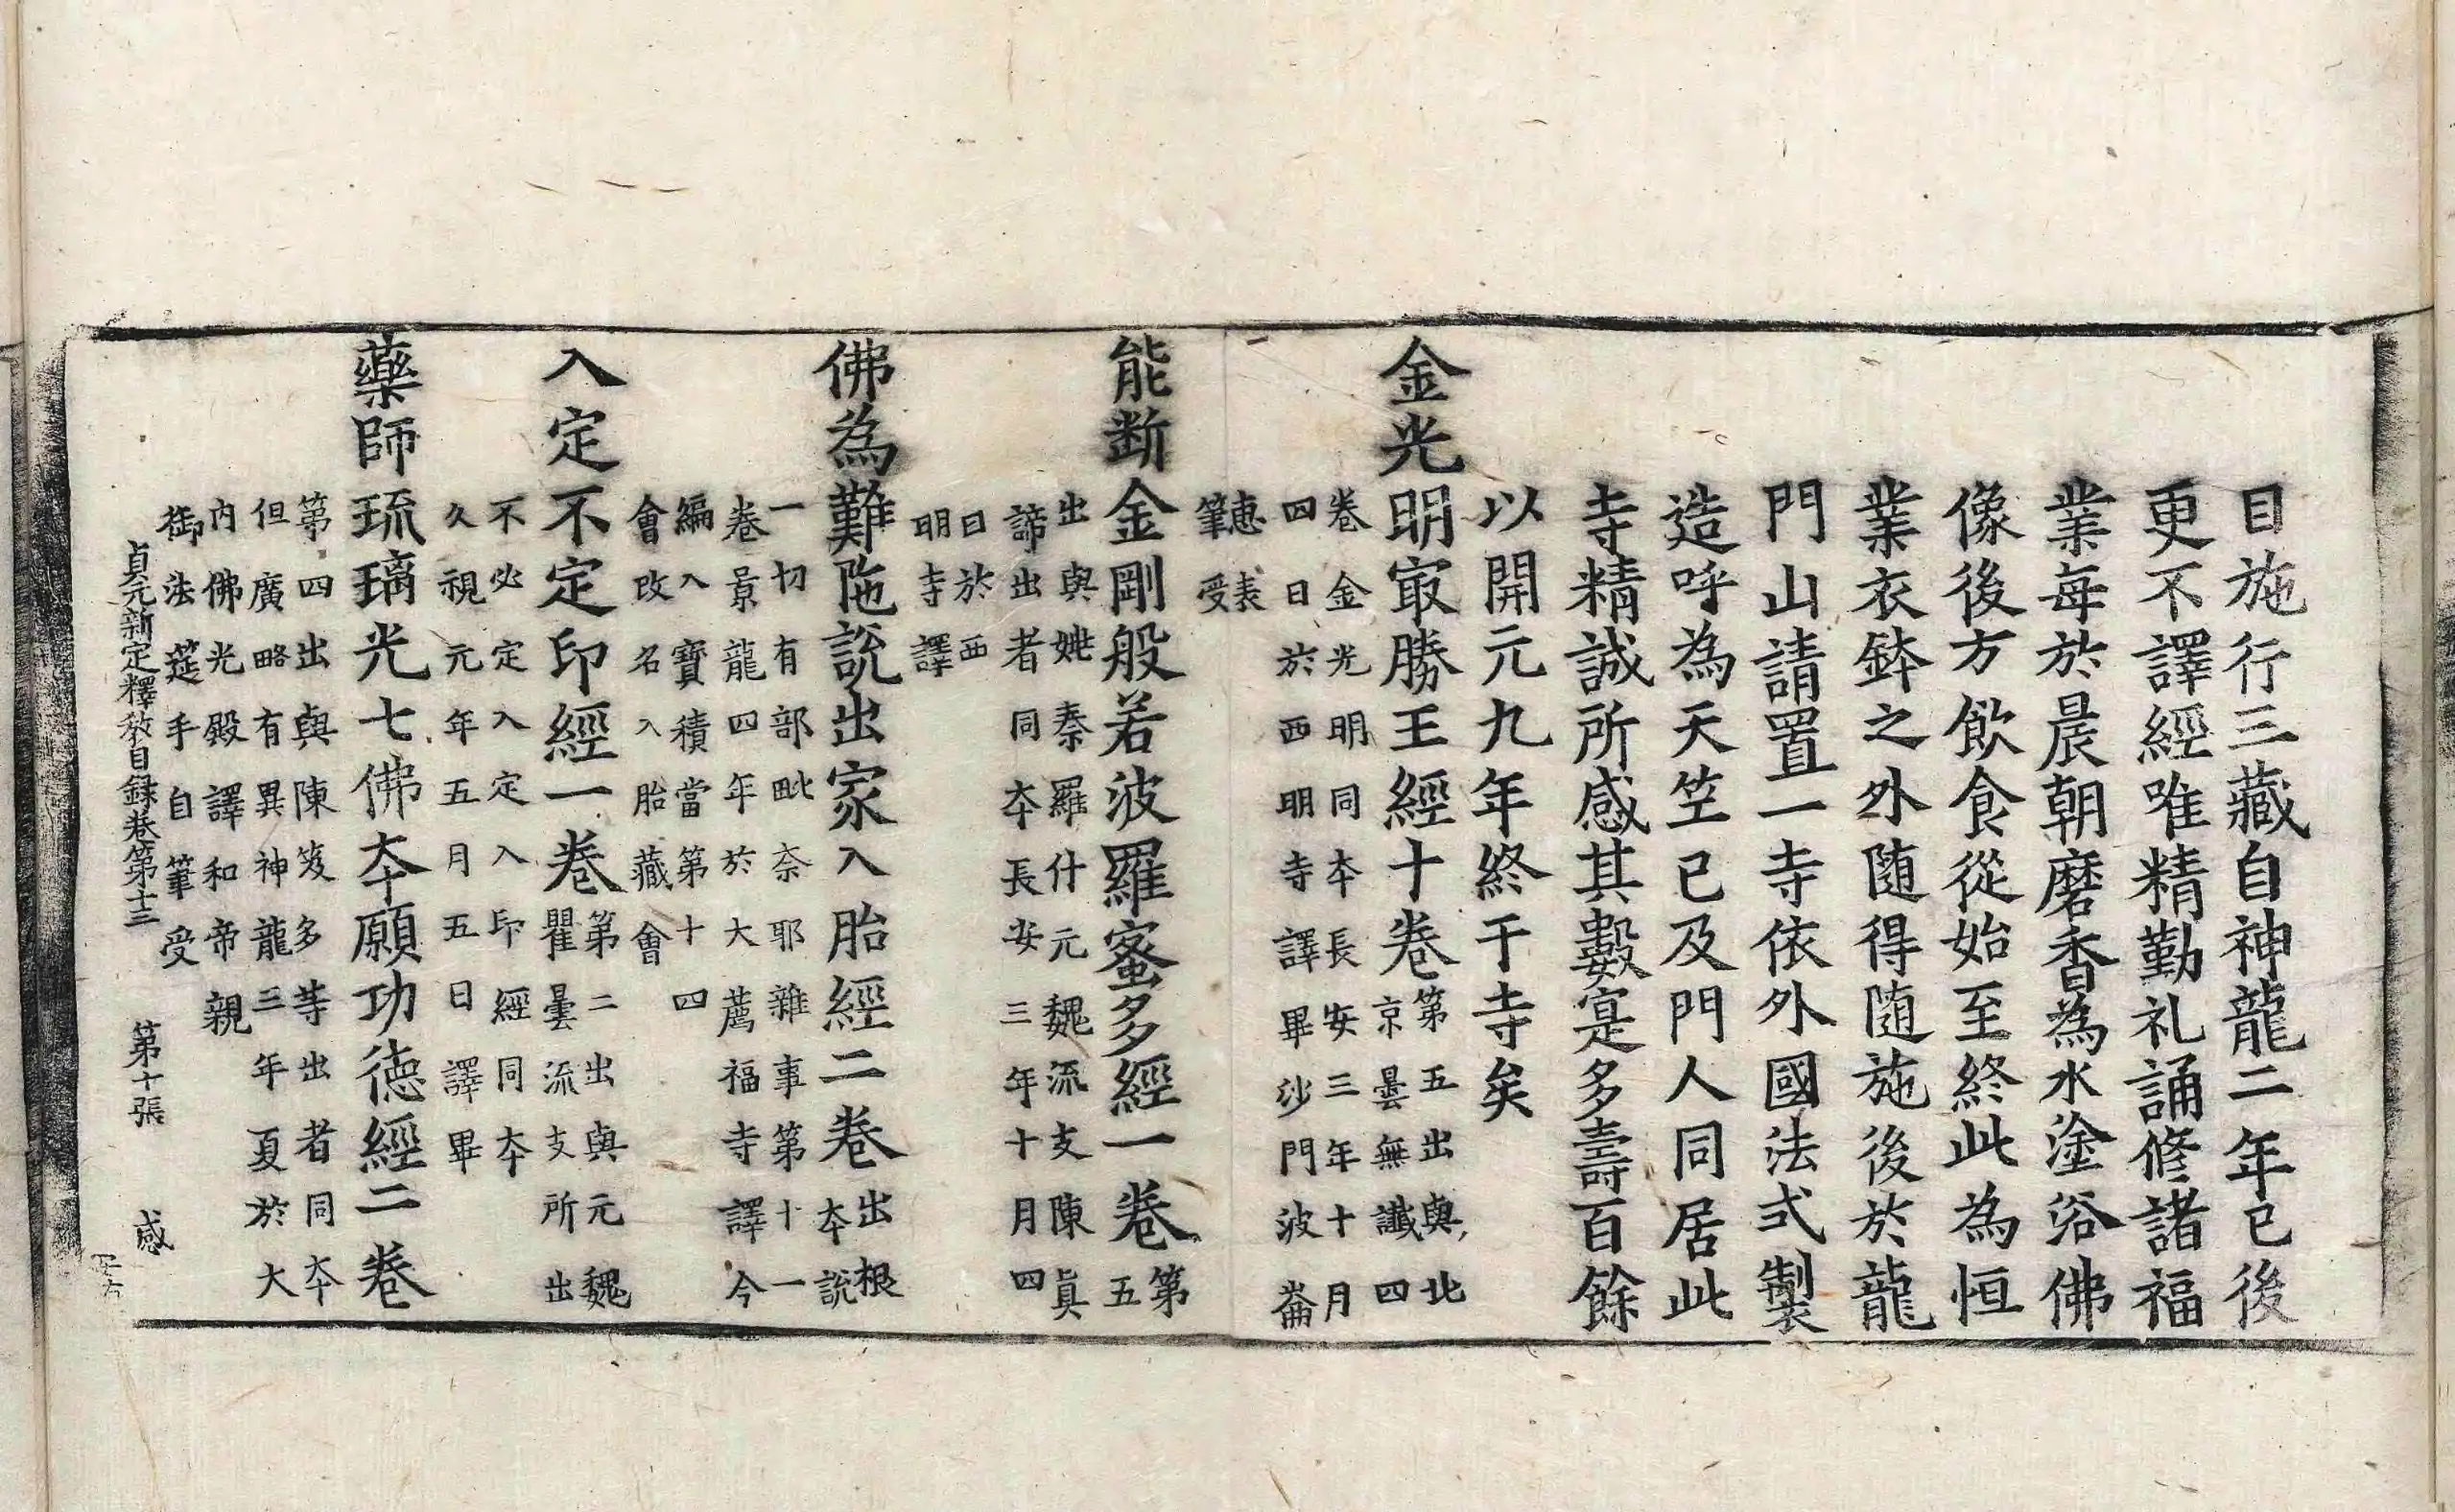 目施行三藏自神龍二年已後
更不譯經唯精勤礼誦修諸福
業每於晨朝磨香為水塗浴佛
像後方飲食從始至終此為恒
業衣鉢之外随得随施後於龍
門山請置一寺依外國法式製
造呼為天笁已及門人同居此
寺精誠所感其數寔多壽百餘
以開元九年終于寺矣
金光明㝡勝王經十卷
第五出與北
京曇無讖四
卷金光明同夲長安三年十月
四日於西明寺譯畢沙門波崙
惠表
筆受
能断金剛般若波羅蜜多經一卷
第
五
出與姚秦羅什元魏流支陳真
諦出者同夲長安三年十月四
日於西
明寺譯
佛為難陁說出家入胎經二卷
出根
夲說
一切有部毗奈耶雜事第十一
卷景龍四年於大薦福寺譯今
編入寶積當第十四
會改名入胎藏會
入定不定印經一卷
第二出與元魏
瞿曇流支所出
不必定入定入印經同夲
久視元年五月五日譯畢
藥師琉璃光七佛夲願功德經二卷
第四出與陳笈多等出者同夲
但廣略有異神龍三年夏於大
內佛光殿譯和帝親
御法莚手自筆受
貞元新定釋教目録卷第十三 第十張 感